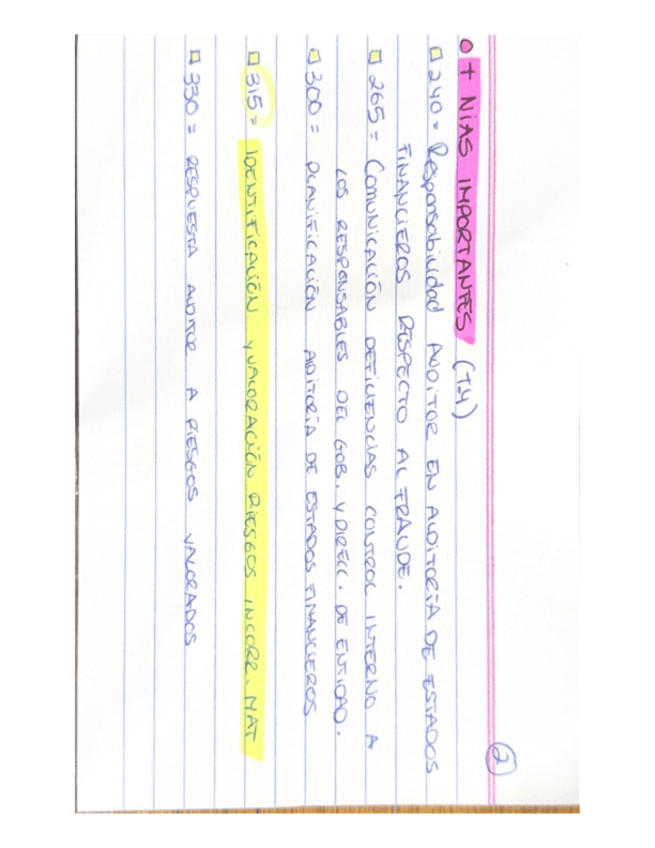 2
+ NIAS IMPORTANTES (T.4)
240 = Responsabilidad AUDITOR EN AUDITORÍA DE ESTADOS
FINANCIEROS RESPECTO AL FRAUDE.
265 = COMUNICACIÓN DEFICIENCIAS CONTROL INTERNO A
LOS RESPONSABLES DEL GOB. Y DIRECC. DE ENTIDAD.
300 = PLANIFICACIÓN AUDITORÍA DE ESTADOS FINANCIEROS
315 = IDENTIFICACIÓN Y VALORACIÓN RIESGOS INCORR. MAT
330 = RESPUESTA AUDITOR A RIESGOS VALORADOS